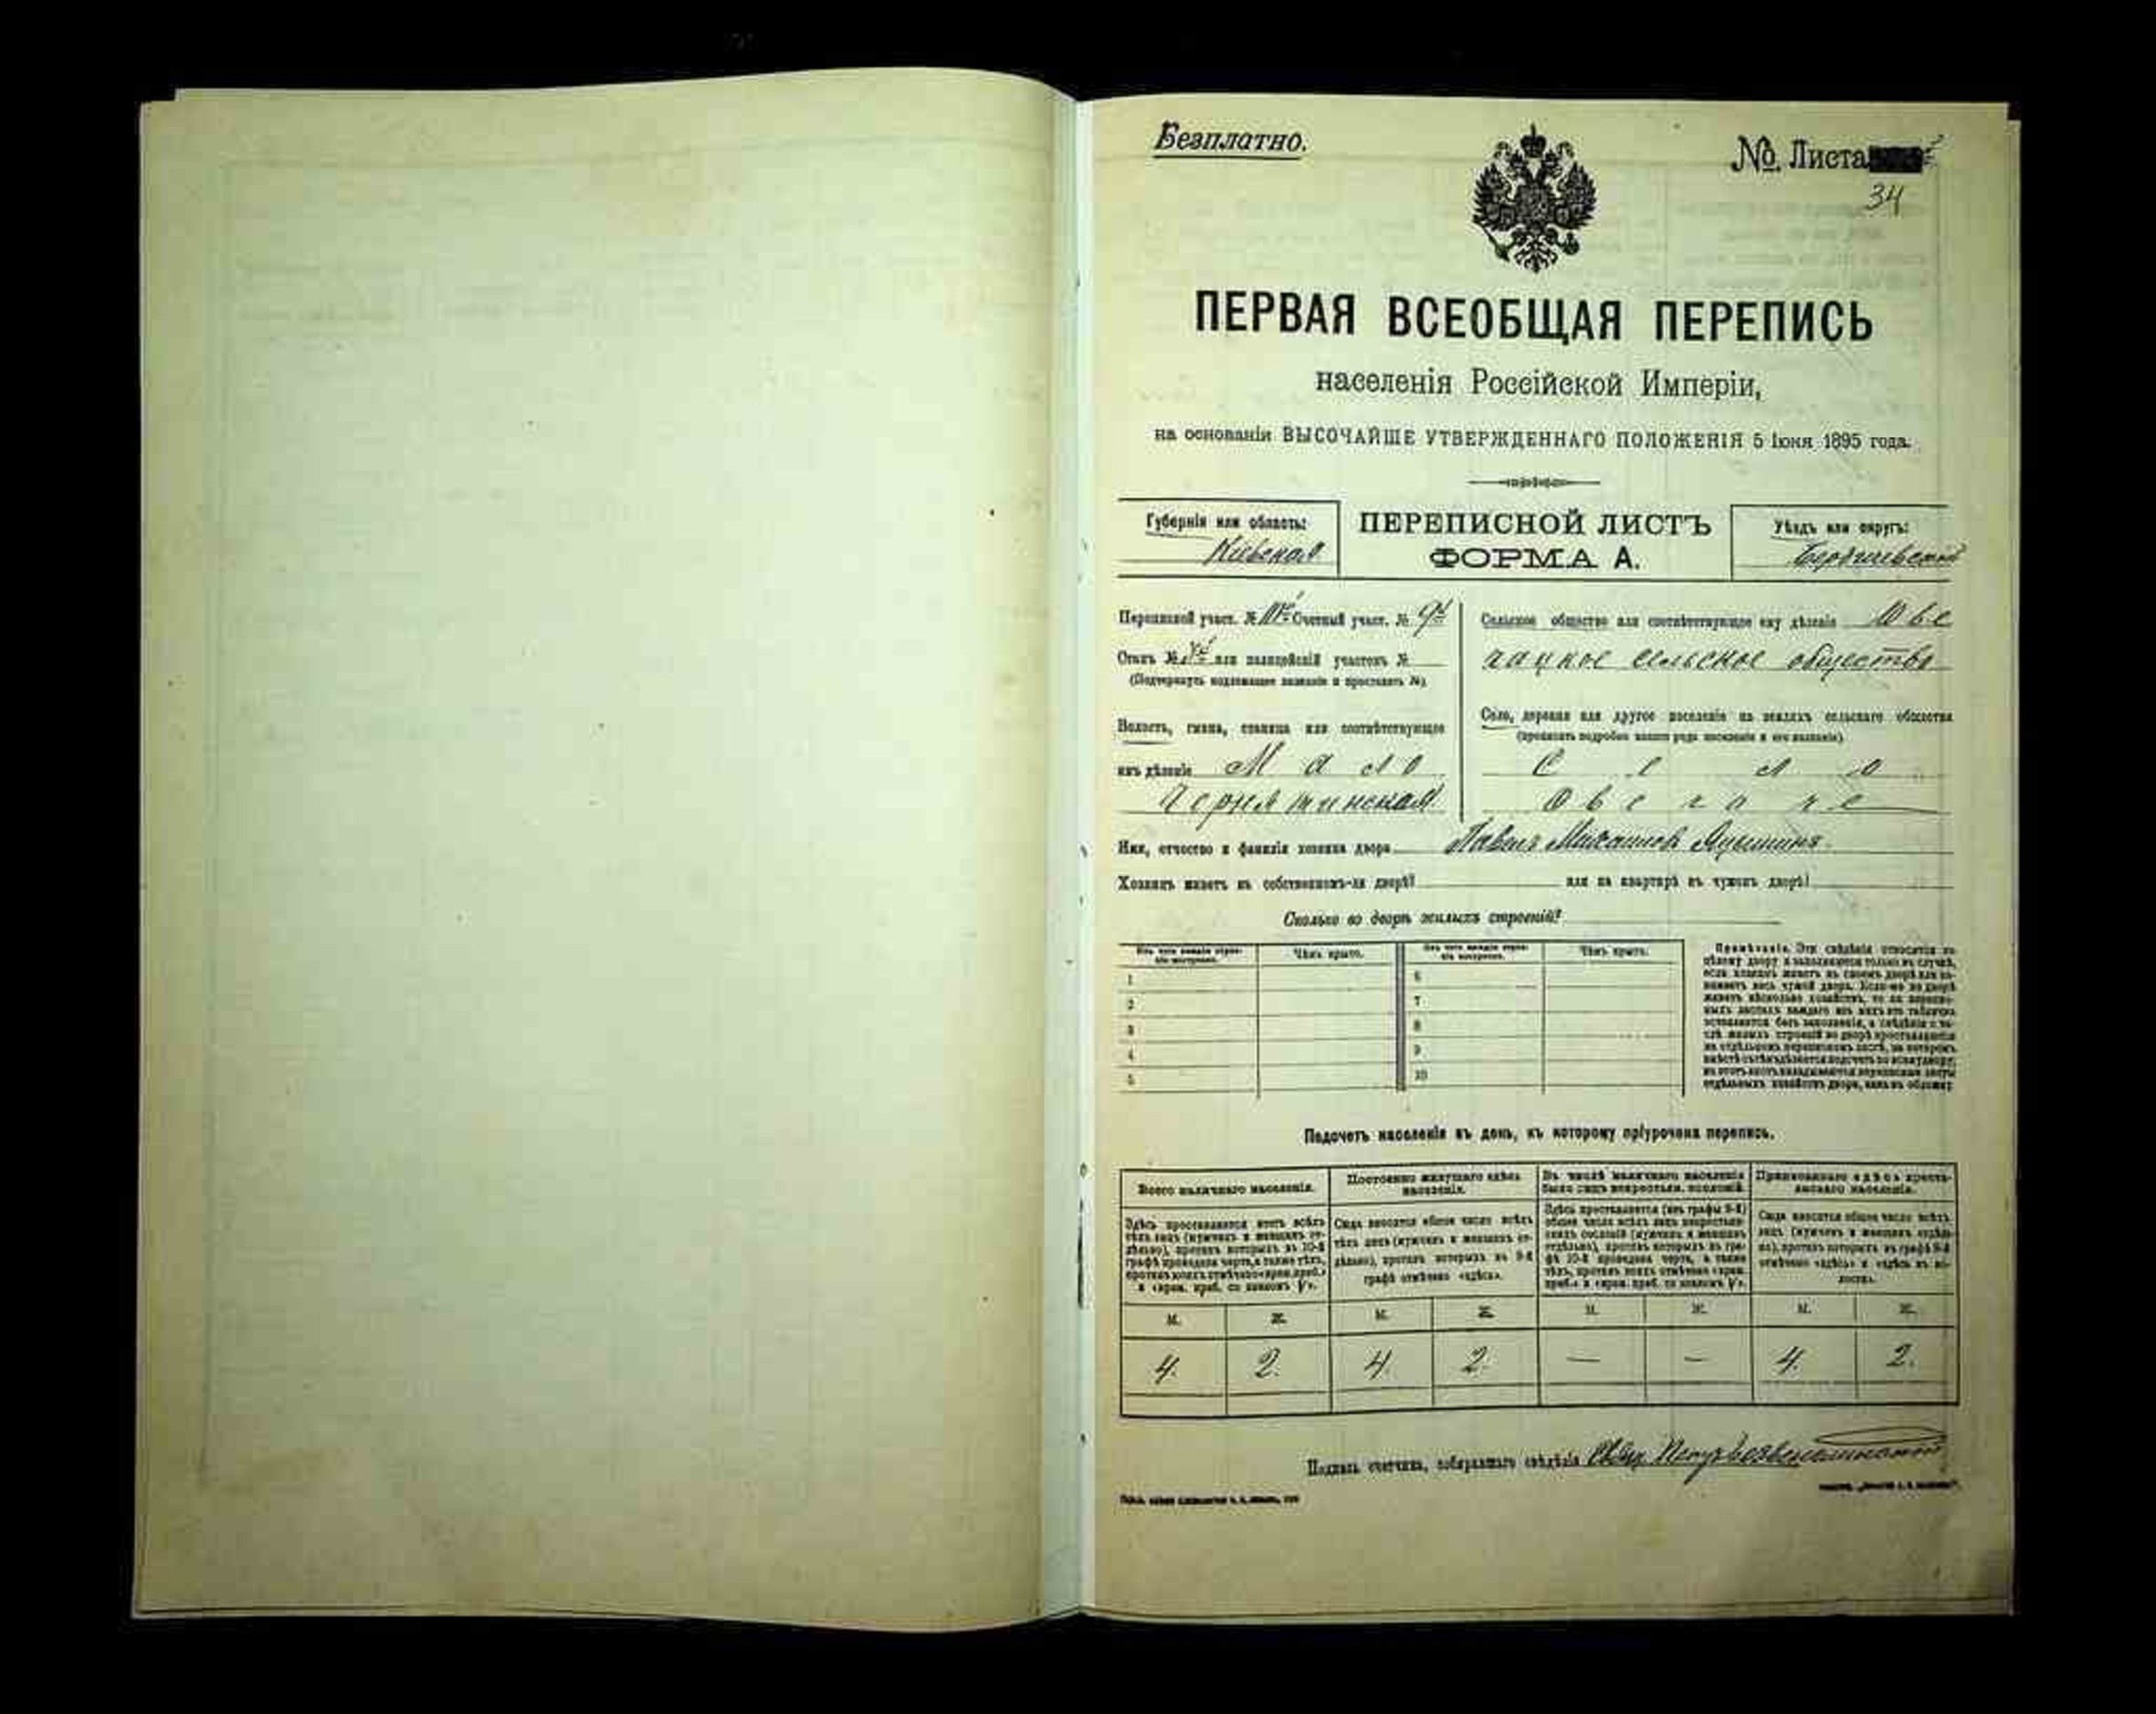 Безплатно.
№ Листа
34
ПЕРВАЯ ВСЕОБЩАЯ ПЕРЕПИСЬ
населенія Россійской Имперіи,
на основаніи ВЫСОЧАЙШЕ УТВЕРЖДЕННАГО ПОЛОЖЕНІЯ 5 Іюня 1895 года.
Губернія или область:
Кіевская
ПЕРЕПИСНОЙ ЛИСТЪ
ФОРМА А.
Уѣздъ или округъ:
Бердичевскій
Переписной участ. № Счетный участ. № 9й
Станъ № или полицейскій участокъ №
(Подчеркнуть надлежащее названіе и проставить №).
Волость, гмина, станица или соотвѣтствующее
имъ дѣленіе Мало
Чернятинская
Сельское общество или соотвѣтствующее ему дѣленіе Ове
чацкое сельское общество
Село, деревня или другое поселеніе на земляхъ сельскаго общества
(прописать подробно какого рода поселеніе и его названіе).
Село
Овечаче
Имя, отчество и фамилія хозяина двора Павелъ Михаиловъ Яцышинъ
Хозяинъ живетъ въ собственномъ-ли дворѣ? или на квартирѣ въ чужомъ дворѣ?
Сколько во дворѣ жилыхъ строеній?
Изъ чего каждое строе-
ніе построено.
Чѣмъ крыто.
Изъ чего каждое строе-
ніе построено.
Чѣмъ крыто.
1 6
2 7
3 8
4 9
5 10
Примѣчаніе. Эти свѣдѣнія относятся къ
цѣлому двору и заполняются только въ случаѣ,
если хозяинъ живетъ въ своемъ дворѣ или за-
нимаетъ весь чужой дворъ. Если-же во дворѣ
живетъ нѣсколько хозяйствъ, то на перепис-
ныхъ листахъ каждаго изъ нихъ эта табличка
оставляется безъ заполненія, а свѣдѣнія о чи-
слѣ жилыхъ строеній во дворѣ проставляются
на отдѣльномъ переписномъ листѣ, на которомъ
вмѣстѣ съ тѣмъ дѣлается подсчетъ по всему двору;
въ этотъ листъ вкладываются переписные листы
отдѣльныхъ хозяйствъ двора, какъ въ обложку.
Подсчетъ населенія въ день, къ которому пріурочена перепись.
Всего наличнаго населенія.
Постоянно живущаго здѣсь
населенія.
Въ числѣ наличнаго населенія
было лицъ некрестьян. сословій.
Приписаннаго здѣсь кресть-
янскаго населенія.
Здѣсь проставляется итогъ всѣхъ
тѣхъ лицъ (мужчинъ и женщинъ от-
дѣльно), противъ которыхъ въ 10-й
графѣ проведена черта, а также тѣхъ,
противъ коихъ отмѣчено «врем. преб.»
и «врем. преб. со знакомъ V».
Сюда вносится общее число всѣхъ
тѣхъ лицъ (мужчинъ и женщинъ от-
дѣльно), противъ которыхъ въ 9-й
графѣ отмѣчено «здѣсь».
Здѣсь проставляется (изъ графы 8-й)
общее число всѣхъ лицъ некрестьян-
скихъ сословій (мужчинъ и женщинъ
отдѣльно), противъ которыхъ въ гра-
фѣ 10-й проведена черта, а также
тѣхъ, противъ коихъ отмѣчено «врем.
преб.» и «врем. преб. со знакомъ V».
Сюда вносится общее число всѣхъ
лицъ (мужчинъ и женщинъ отдѣль-
но), противъ которыхъ въ графѣ 8-й
отмѣчено «здѣсь» и «здѣсь въ во-
лости».
М. Ж. М. Ж. М. Ж. М. Ж.
4. 2. 4. 2. — — 4. 2.
Подпись счетчика, собиравшаго свѣдѣнія